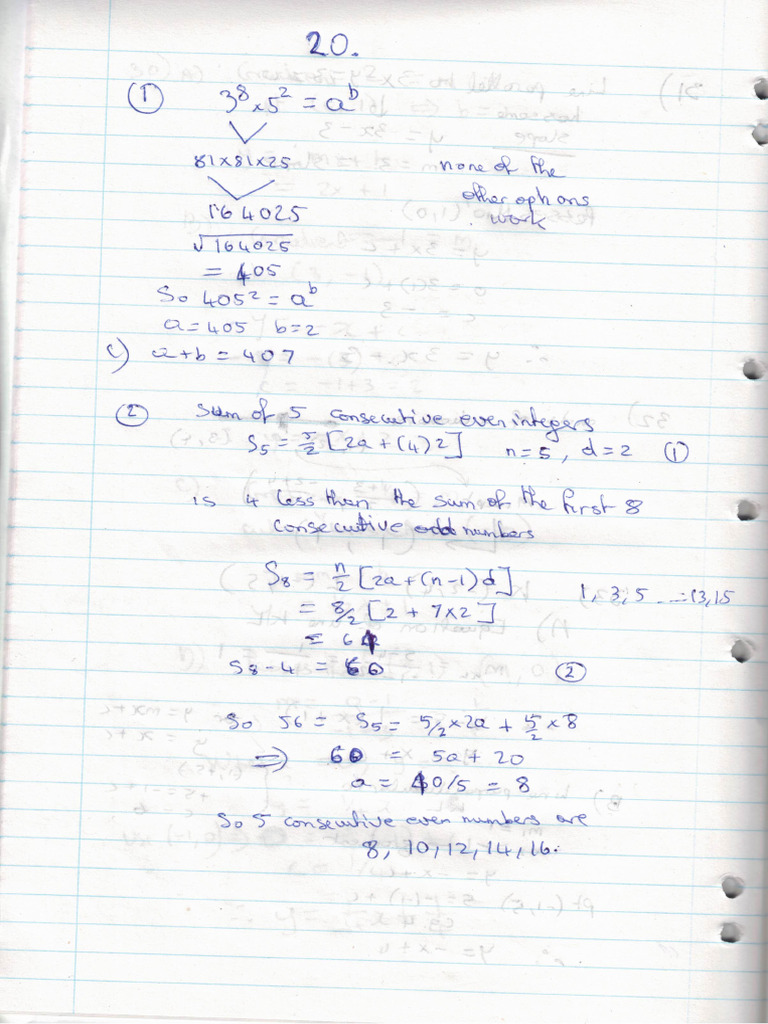 20.
① 3⁸ × 5² = aᵇ
81×81×25 none of the
other options
164025 work
√164025
= 405
So 405² = aᵇ
a = 405 b = 2
c) a+b = 407
② Sum of 5 consecutive even integers
S₅ = 5/2 [2a + (4)2] n = 5, d = 2 ①
is 4 less than the sum of the first 8
consecutive odd numbers
S₈ = n/2 [2a + (n-1)d]
1, 3, 5 ... 13, 15
= 8/2 [2 + 7×2]
= 64
S₈ - 4 = 60 ②
So 56 = S₅ = 5/2 × 2a + 5/2 × 8
⇒ 60 = 5a + 20
a = 40/5 = 8
So 5 consecutive even numbers are
8, 10, 12, 14, 16.